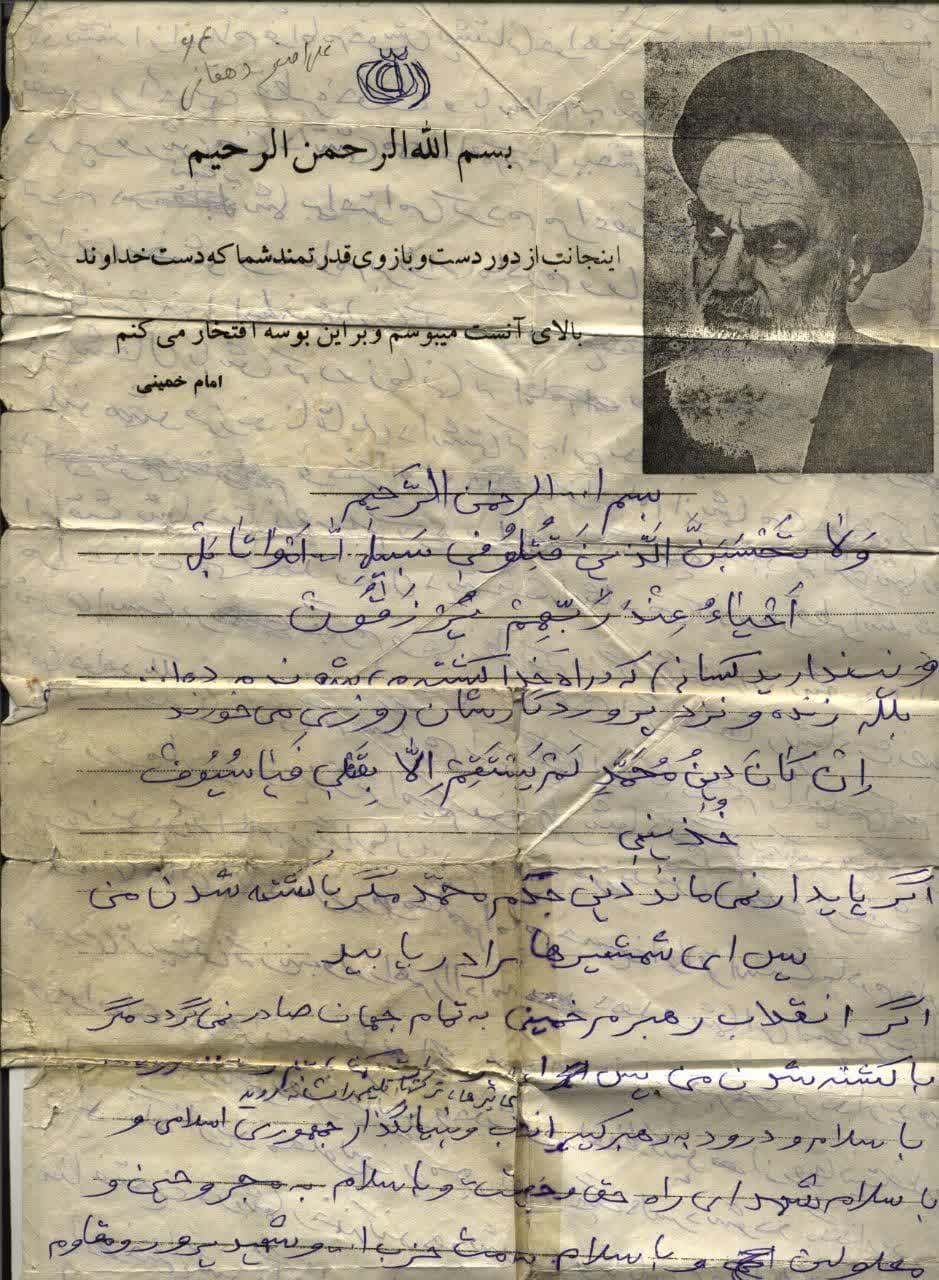 بسم الله الرحمن الرحیم
اینجانب از دور دست و بازوی قدرتمند شما که دست خداوند
بالای آنست میبوسم و بر این بوسه افتخار می کنم
امام خمینی
بسم ا... الرحمن الرَّحیم
وَلا تَحْسَبَنَّ الَّذینَ قُتِلُو فی سَبیلِ اللّه اَمْواتا بَلْ
اَحْیاءُ عِنْدَ رَبِّهِمْ یُرْزَقُونَ
نپندارید کسانی که در راه خدا کشته می شوند مرده اند
بلکه زنده و نزد پروردگارشان روزی می خورند
اِن کانَ دینُ مُحَمَّدٍ لَمْ یَسْتَقِمْ اِلّا بِقَتْلی فَیا سُیُوفُ
خُذینی
اگر پایدار نمی ماند دین جدّم محمّد مگر با کشته شدن من
پس ای شمشیرها مرا دریابید
اگر انقلاب رهبرم خمینی به تمام جهان صادر نمی گردد مگر
با کشته شدن من پس ای
با سلام و درود به رهبر کبیر انقلاب و بنیانگذار جمهوری اسلامی و
با سلام شهدای راه حق و با سلام به مجروحین و
معلولین و با سلام به امت حزب ا... و شهید پرور و مقاوم